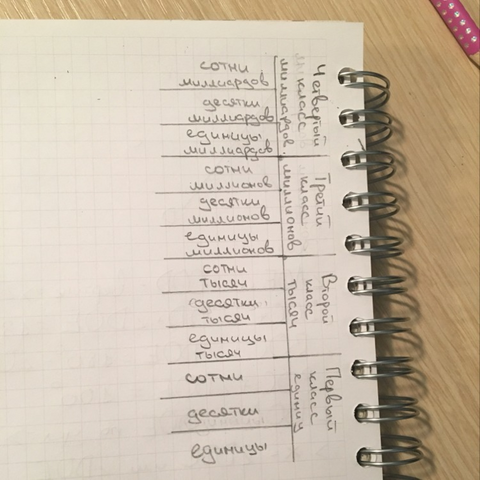 Четвертый
класс
миллиардов
сотни
миллиардов
десятки
миллиардов
единицы
миллиардов
Третий
класс
миллионов
сотни
миллионов
десятки
миллионов
единицы
миллионов
Второй
класс
тысяч
сотни
тысяч
десятки
тысяч
единицы
тысяч
Первый
класс
единиц
сотни
десятки
единицы